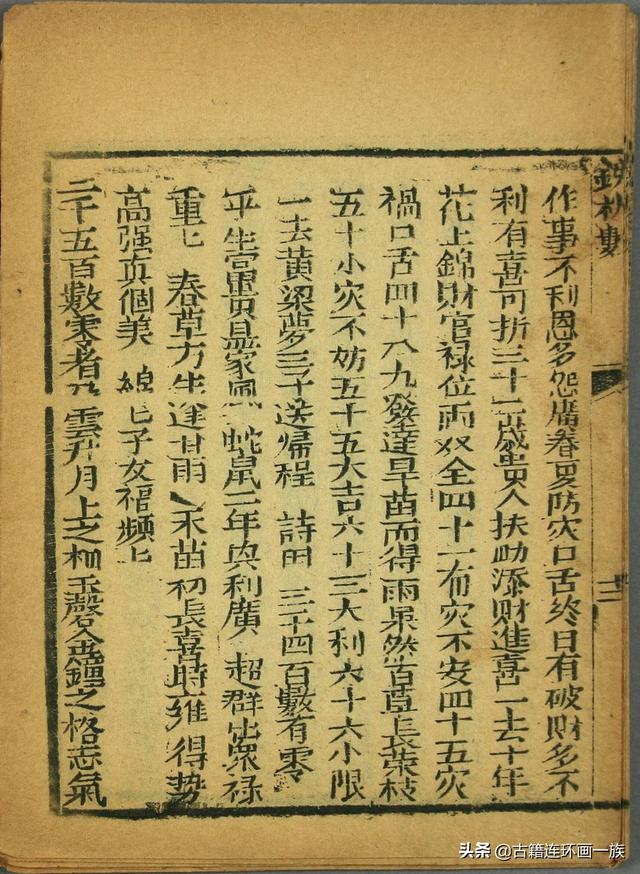 鉄板數
十二
作事不利恩多怨廣春夏防災口舌終日有破財多不
利有喜可折三十一歲貴人扶助添財進喜一去十年
花上錦財官禄位兩双全四十一布災不安四十五災
禍口舌四十八九發達旱苗而得雨果然古草長荣枝
五十小災不妨五十五大吉六十三大利六十六小限
一去黄梁夢三子送帰程 詩曰 三千四百數有零
平生富貴益家風 蛇鼠二年興利廣 超群出衆禄
重七 春草方生逢甘雨 禾苗初長喜時雍 得勢
高强真個美 綿七子女福頻上
三千五百數零者乃 雲升月上之 玉磬金鐘之格志氣
头条 @古籍连环画一族